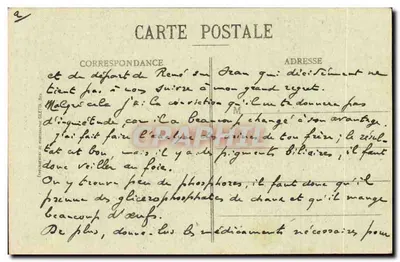 2
CARTE POSTALE
CORRESPONDANCE
ADRESSE
et du départ de René sur Jean qui décidément ne
tient pas à nous suivre à mon grand regret.
Malgré cela j'ai la conviction qu'il ne te donnera pas
d'inquiétude car il a beaucoup changé à son avantage.
J'ai fait faire l'analyse d'urine de ton frère ; le résul-
tat est bon, mais il y a des pigments biliaires, il faut
donc veiller au foie.
On y trouve peu de phosphores, il faut donc qu'il
prenne des glicérophosphates de chaux et qu'il mange
beaucoup d'œufs.
De plus, donne-lui les médicaments nécessaires pour